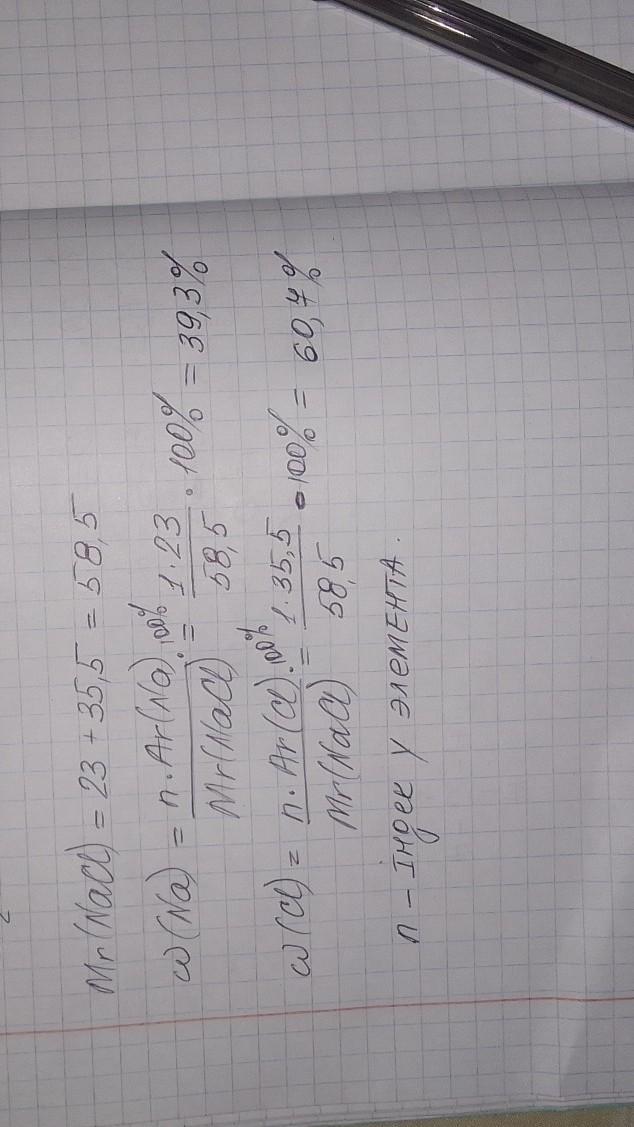 Mr(NaCl) = 23 + 35,5 = 58,5
ω(Na) = n·Ar(Na)·100% / Mr(NaCl) = 1·23 / 58,5 · 100% = 39,3%
ω(Cl) = n·Ar(Cl)·100% / Mr(NaCl) = 1·35,5 / 58,5 · 100% = 60,7%
n – Індек у элемента.